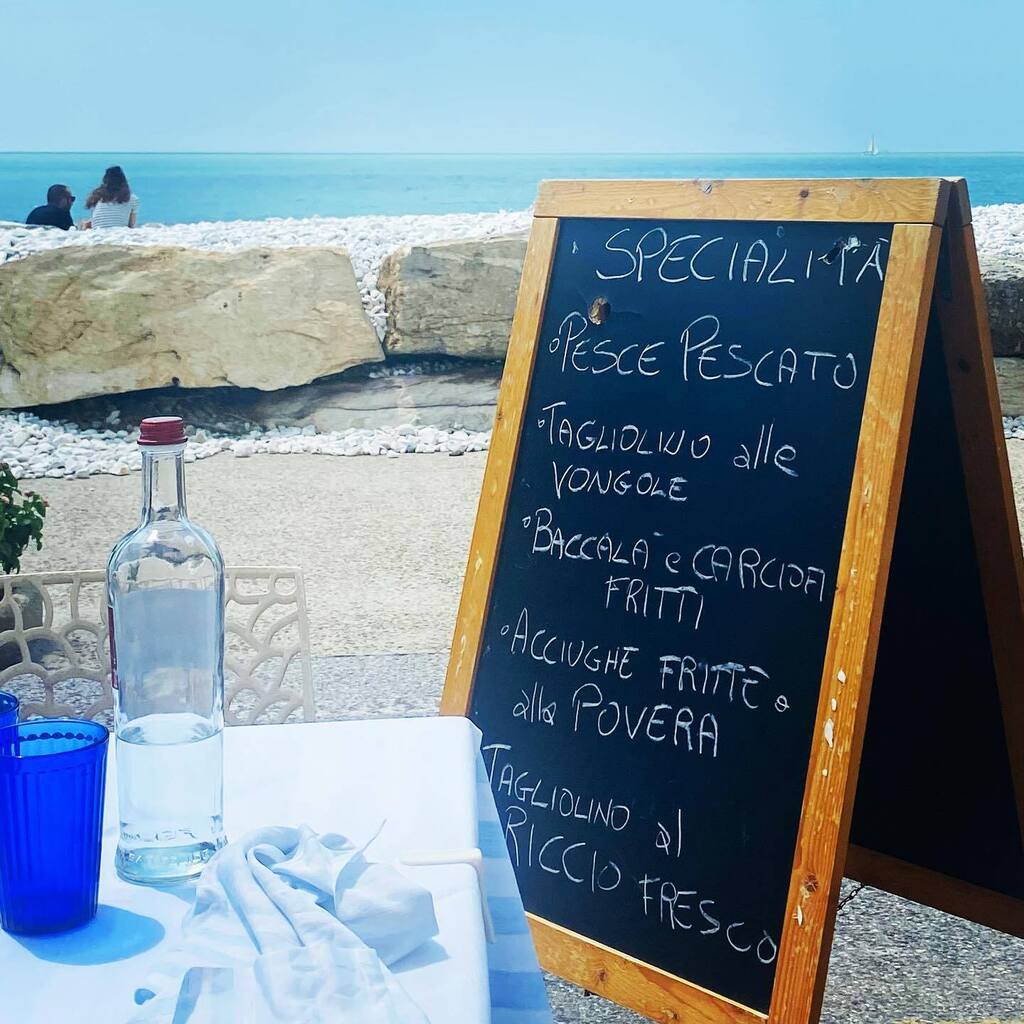 SPECIALITÀ
PESCE PESCATO
TAGLIOLINO alle
VONGOLE
BACCALA' e CARCIOFI
FRITTI
ACCIUGHE FRITTE o
alla POVERA
TAGLIOLINO al
RICCIO FRESCO